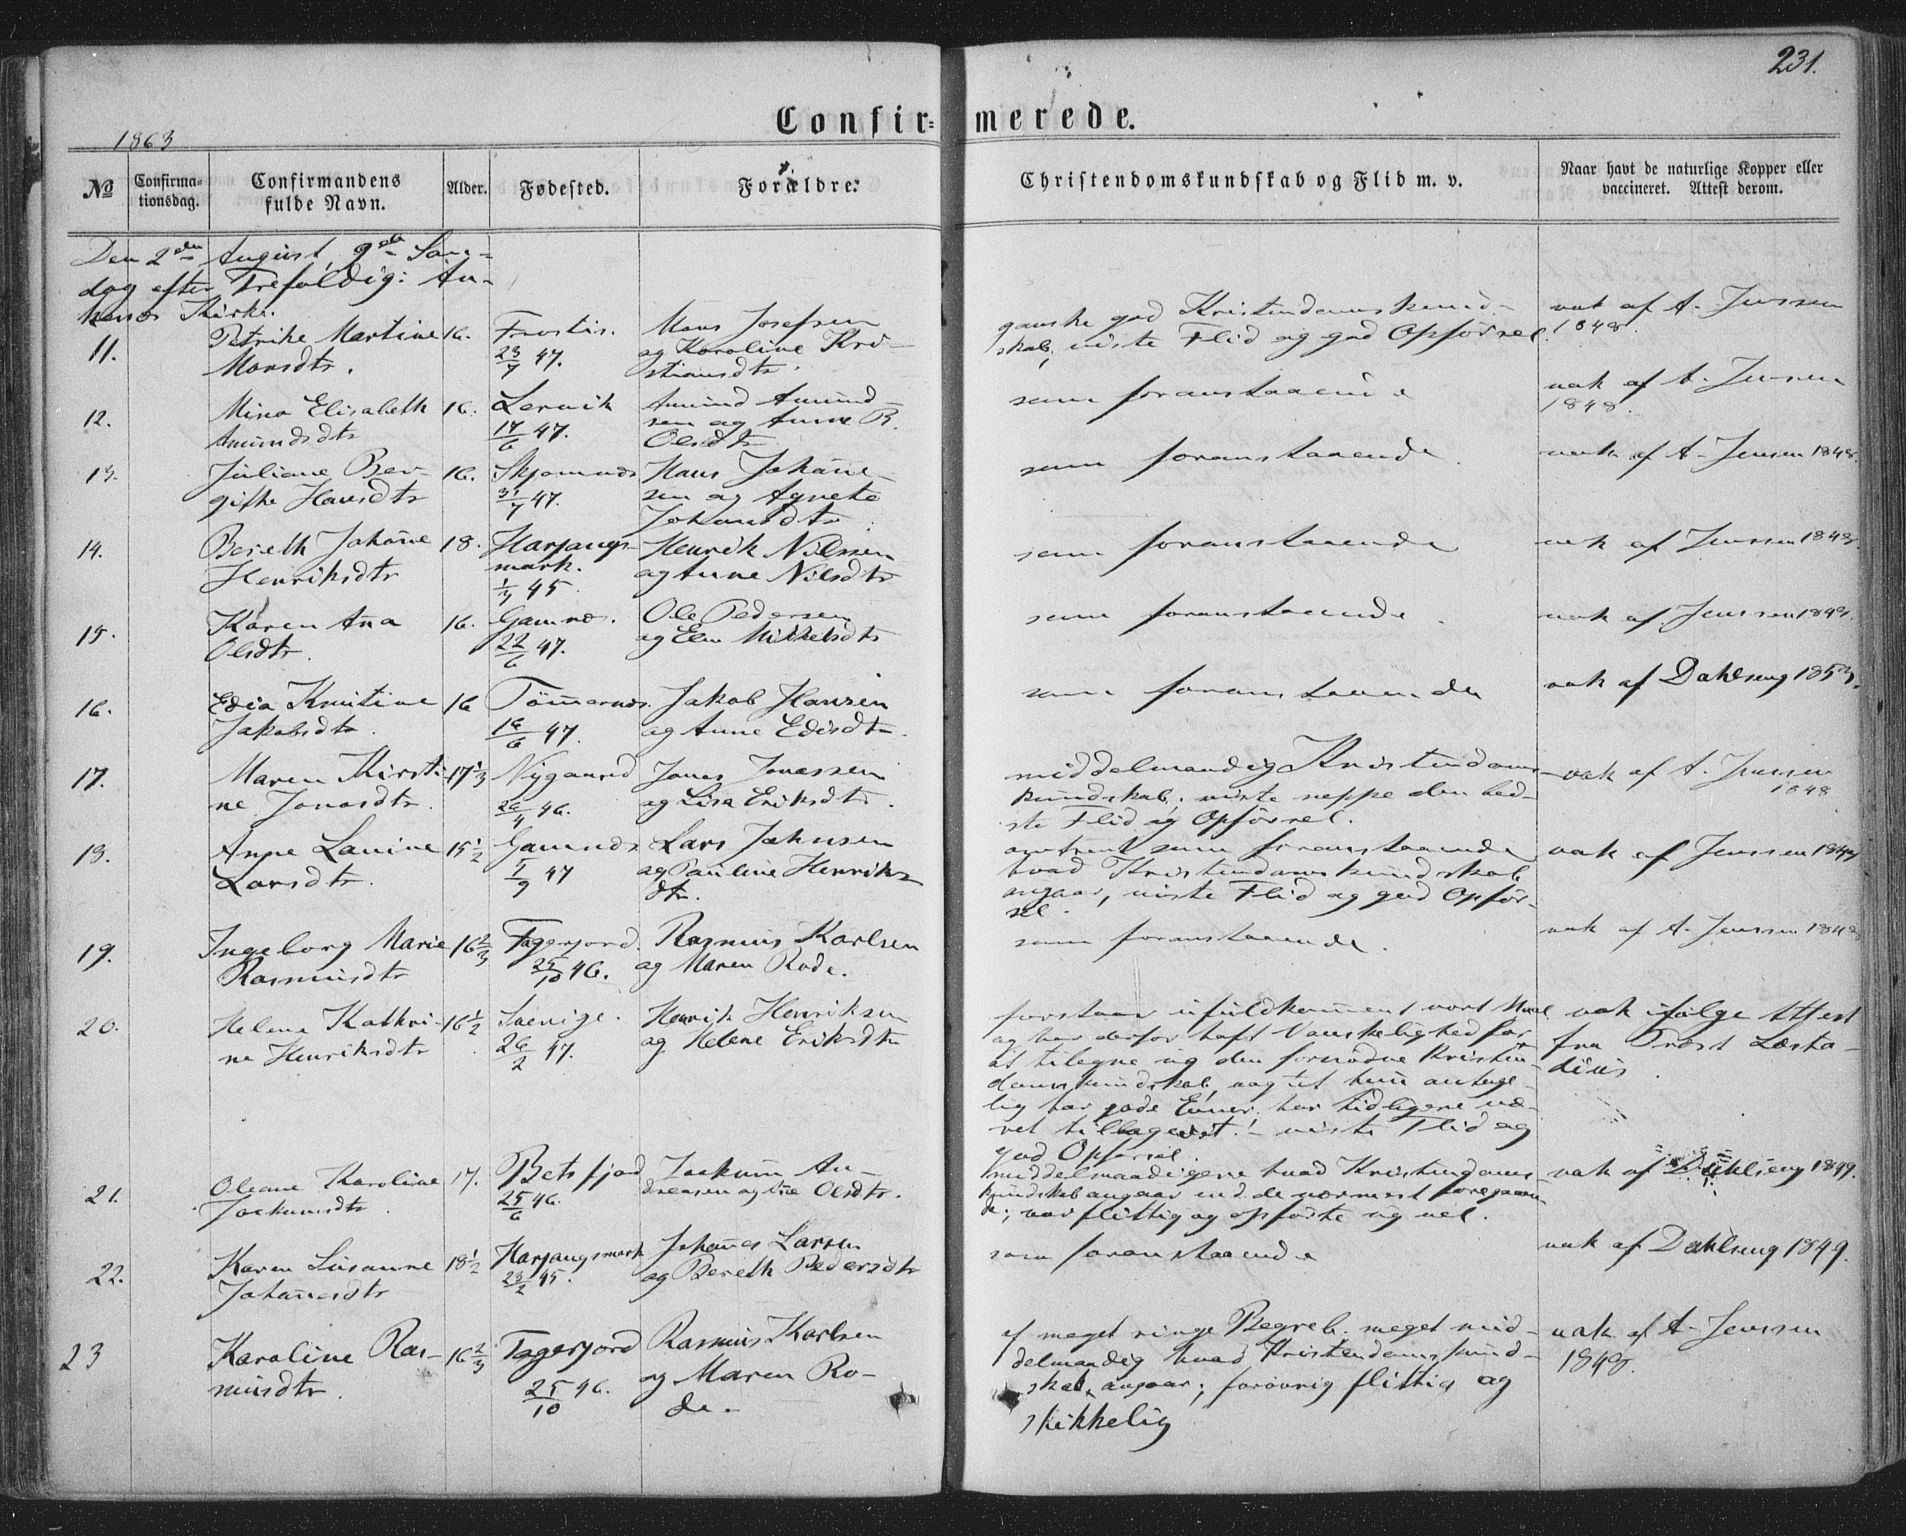 231.
Confir= merede.
1863
No
Confirma-
tionsdag.
Confirmandens
fulde Navn.
Alder.
Fødested.
Forældre.
Christendomskundskab og Flid m. v.
Naar havt de naturlige Kopper eller
vaccineret. Attest derom.
Den 2den August, 9de Søn-
dag efter Trefoldig: An-
kenes Kirke.
11.
Petrike Martine
Monsdtr.
16.
23/7 47.
Mons Josefsen
og Karoline Kri-
stiansdtr.
ganske god Kristendomskund-
skab, viste Flid og god Opførsel.
vak af A. Jenssen
1848.
12.
Mina Elisabeth
Amundsdtr
16.
Lervik
17/6 47.
Amund Amund-
sen og Anne B.
Olsdtr
som foranstaaende
vak af A. Jenssen
1848.
13.
Juliane Ber-
githe Hansdtr
16.
Skjomnæs
31/7 47.
Hans Johañe-
sen og Agnete
Johansdtr.
som foranstaaende.
vak af A. Jensen 1848.
14.
Bereth Johañe
Henriksdtr
18.
Harjangs-
mark.
1/7 45.
Henrik Nilssen
og Anne Nilsdtr
som foranstaaende
vak af Jenssen 1848.
15.
Karen Aña
Olsdtr.
16.
Gamnes.
22/6 47.
Ole Pedersen
og Elen Mikkelsdtr
som foranstaaende.
vak af Jenssen 1849.
16.
Edia Knutine
Jakobsdtr.
16
Tömmernæs.
16/6 47.
Jakob Hansen
og Anne Edisdtr.
som foranstaaende
vak af Dahlseng 1853.
17.
Maren Kirsti-
ne Jonasdtr.
17 1/3
Nygaard
26/4 46.
Jonas Jonassen
og Lisa Eriksdtr.
middelmaadig Kristendoms-
kundskab; viste neppe den bed-
ste Flid og Opförsel.
vak af A. Jenssen
1848
18.
Anne Lavine
Larsdtr.
15 1/2
Gamnæs
5/9 47
Lars Johnsen
og Pauline Henriks-
dtr.
omtrent som foranstaaende
hvad Kristendomskundskab
angaar, viste Flid og god Opför-
sel.
vak af Jenssen 1849
19.
Ingeborg Marie
Rasmusdtr
16 2/3
Fagerjord.
25/10 46.
Rasmus Karlsen
og Maren Rode.
som foranstaaende.
vak af A. Jenssen 1848
20.
Helena Kathri-
ne Henriksdtr
16 1/2
Sverige.
26/2 47.
Henrik Henriksen
og Helene Eriksdtr
forstaar ufuldkomment vort Maal
og har derfor haft Vanskelighed for
at tilegne sig den fornödne Kristen-
domskundskab, uagtet hun antage-
lig har gode Evner. har tidligere væ-
ret tilbageviist. - viste Flid og
god Opförsel.
vak ifølge Attest
fra Prost Læsta-
dius.
21.
Oleane Karoline
Joakumsdtr.
17.
Betsfjord
25/6 46.
Joakum An-
dreasen og Ane Olsdtr.
middelmaadigere hvad Kristendoms
kundskab angaar end de nærmest foregaaen-
de; var flittig og opførte sig vel.
vak af Dahlseng 1849.
22.
Karen Susanne
Johañesdtr
18 1/2
Harjangsmark
23/2 45.
Johañes Larsen
og Bereth Pedersdtr
som foranstaaende
vak af Dahlseng 1849.
23
Karoline Ras-
musdtr.
16 2/3
Fagerjord
25/10 46.
Rasmus Karlsen
og Maren Ro-
de.
af meget ringe Begreb. meget mid-
delmaadig hvad Kristendomskund-
skab angaar; forövrig flittig og
skikkelig
vak af A. Jenssen
1848.